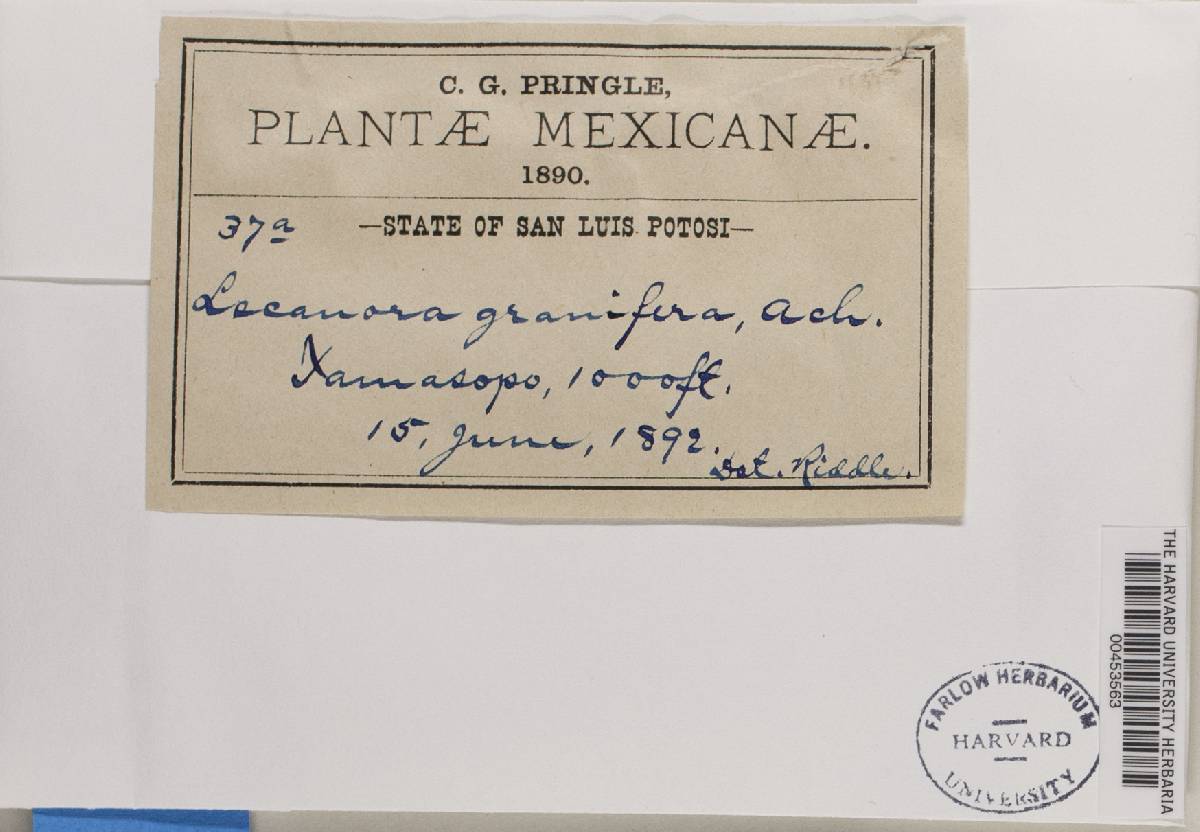 C. G. PRINGLE,
PLANTÆ MEXICANÆ.
1890.
37a —STATE OF SAN LUIS POTOSI—
Lecanora granifera, Ach.
Xamasopo, 1000ft.
15, June, 1892.
Det. Riddle.
THE HARVARD UNIVERSITY HERBARIA
00453563
FARLOW HERBARIUM
HARVARD
UNIVERSITY